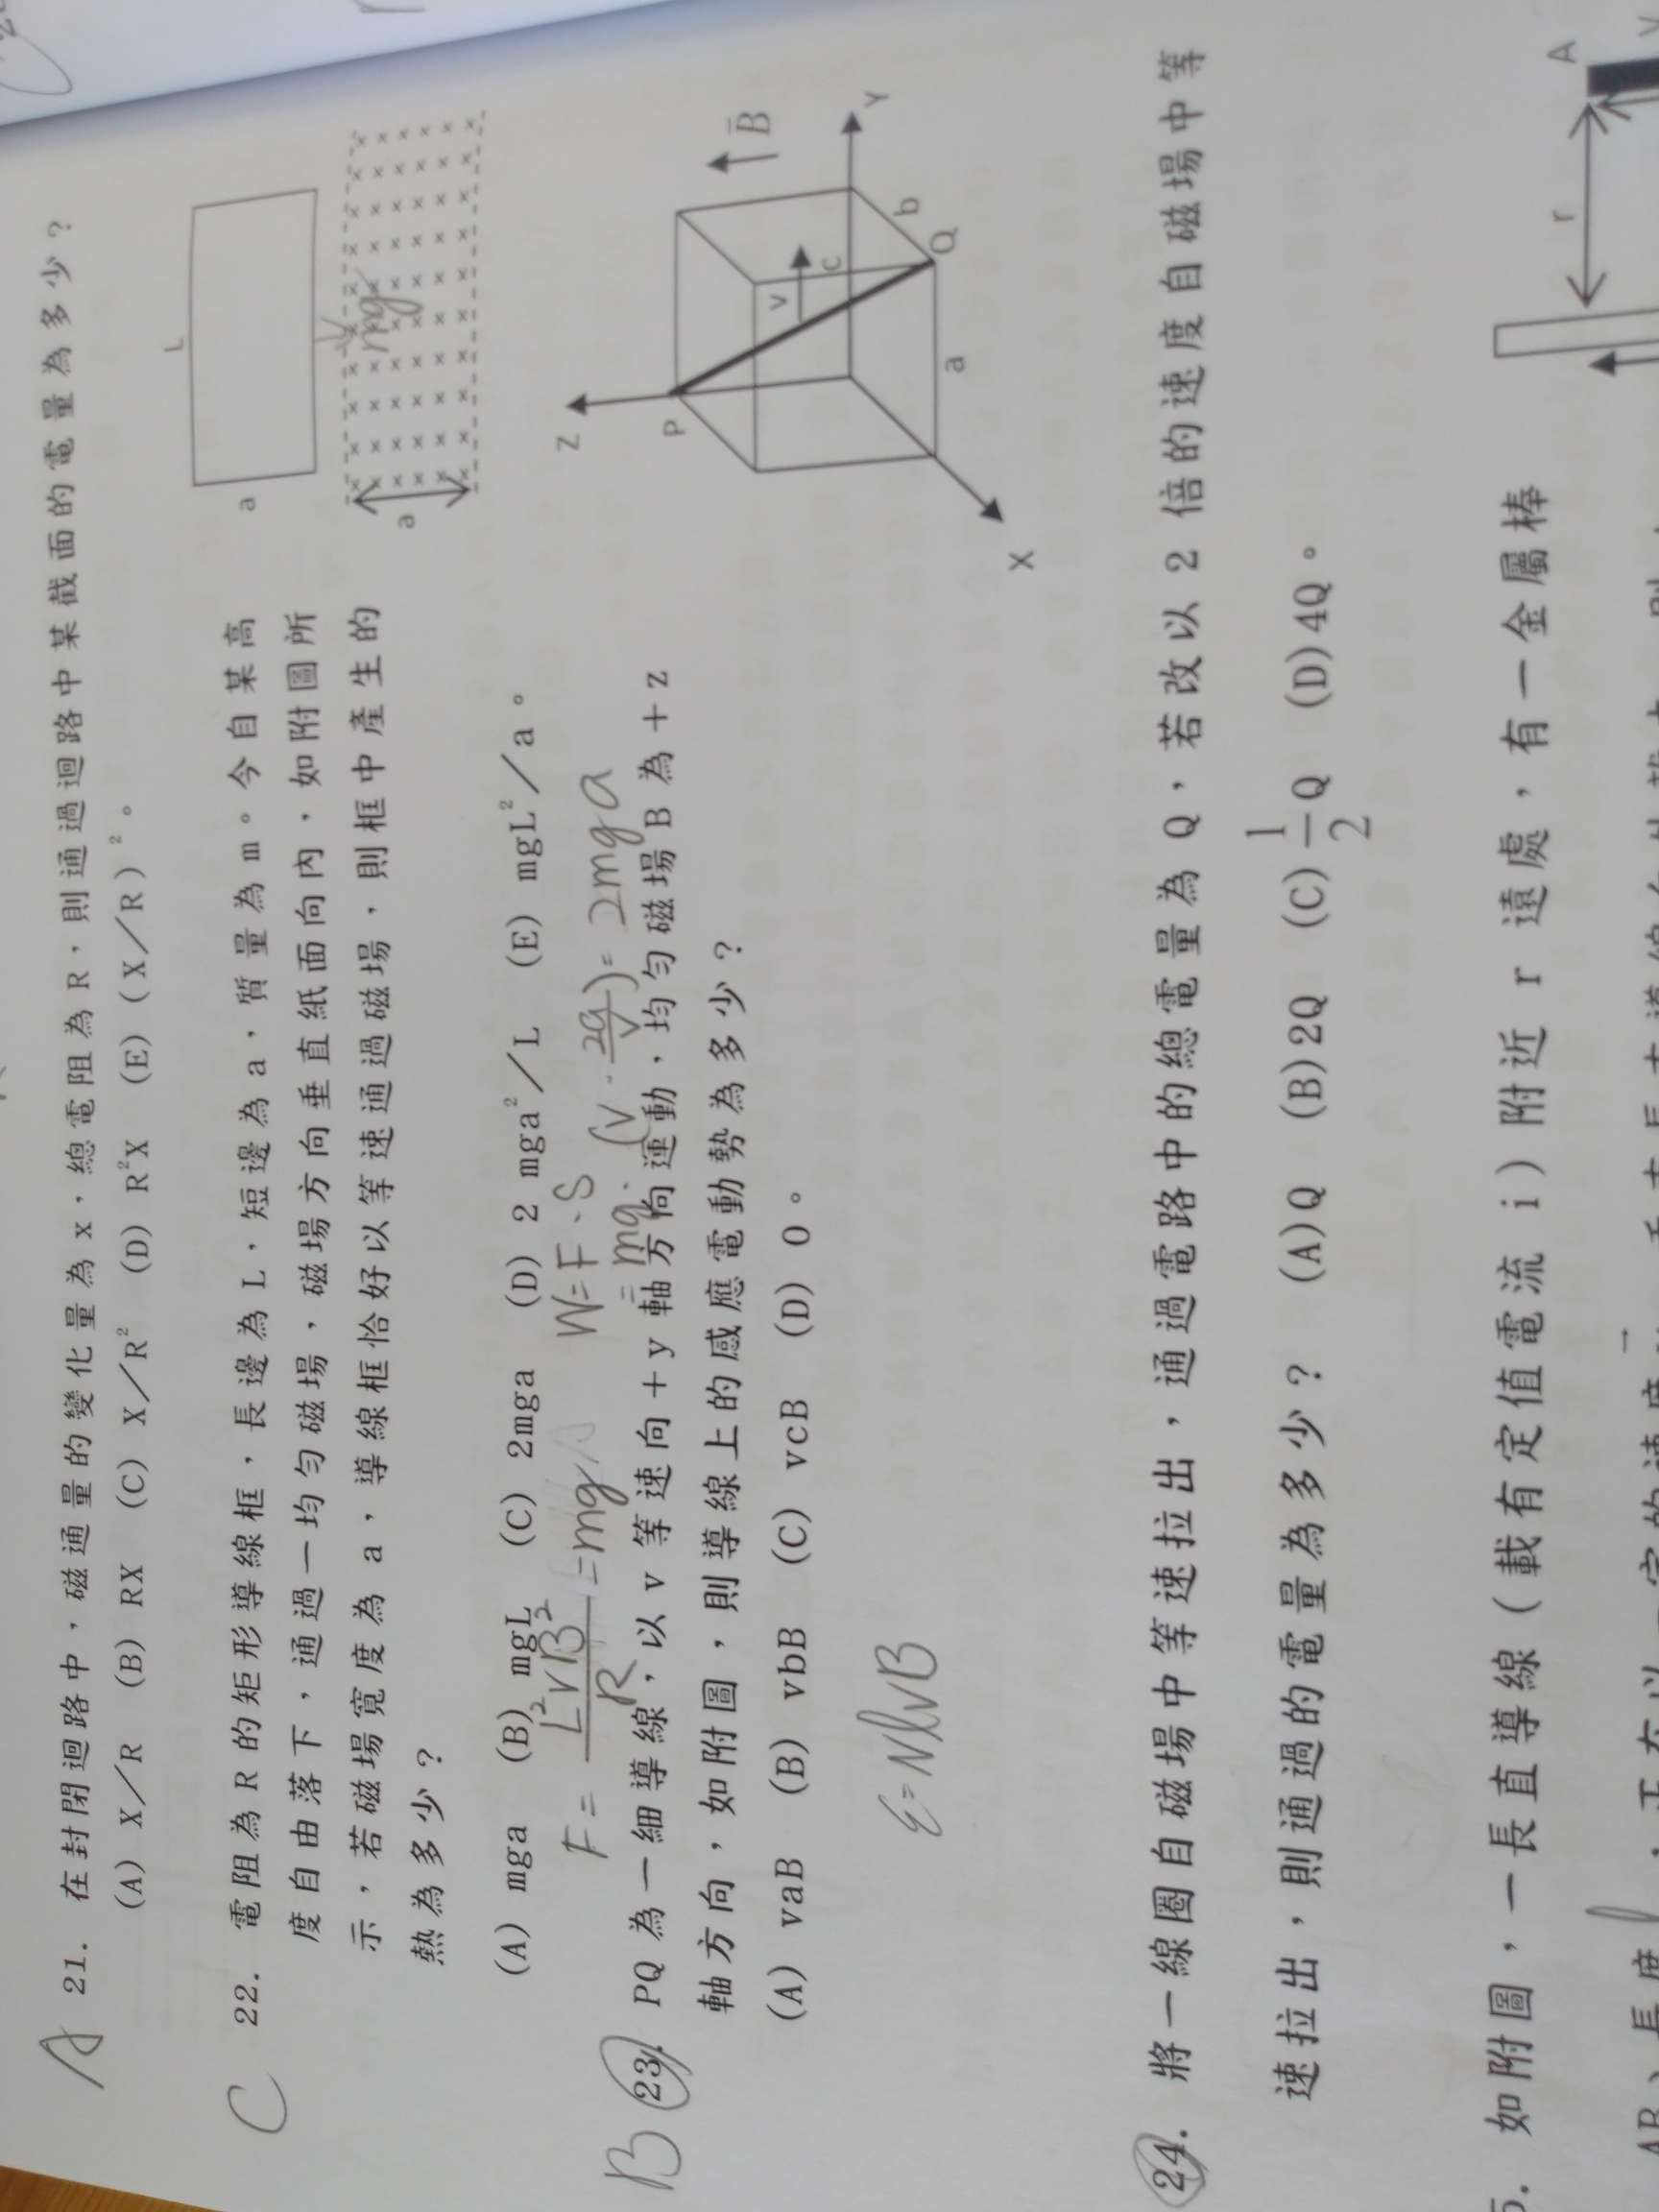 A 21. 在封閉迴路中，磁通量的變化量為 x，總電阻為 R，則通過迴路中某截面的電量為多少？
(A) X／R (B) RX (C) X／R² (D) R²X (E) (X／R)²。
C 22. 電阻為 R 的矩形導線框，長邊為 L，短邊為 a，質量為 m。今自某高
度自由落下，通過一均勻磁場，磁場方向垂直紙面向內，如附圖所
示，若磁場寬度為 a，導線框恰好以等速通過磁場，則框中產生的
熱為多少？
L
a
mg
a
(A) mga (B) mgL (C) 2mga (D) 2 mga²／L (E) mgL²／a。
F = L²vB²/R = mg
W = F·S
= mg·(v·2a/v) = 2mga
B 23. PQ 為一細導線，以 v 等速向＋y 軸方向運動，均勻磁場 B 為＋z
軸方向，如附圖，則導線上的感應電動勢為多少？
(A) vaB (B) vbB (C) vcB (D) 0。
ε=NlvB
Z
P
v
B
c
Y
b
Q
a
X
24. 將一線圈自磁場中等速拉出，通過電路中的總電量為 Q，若改以 2 倍的速度自磁場中等
速拉出，則通過的電量為多少？ (A)Q (B)2Q (C)1/2Q (D)4Q。
如附圖，一長直導線（載有定值電流 i）附近 r 遠處，有一金屬棒
r
A